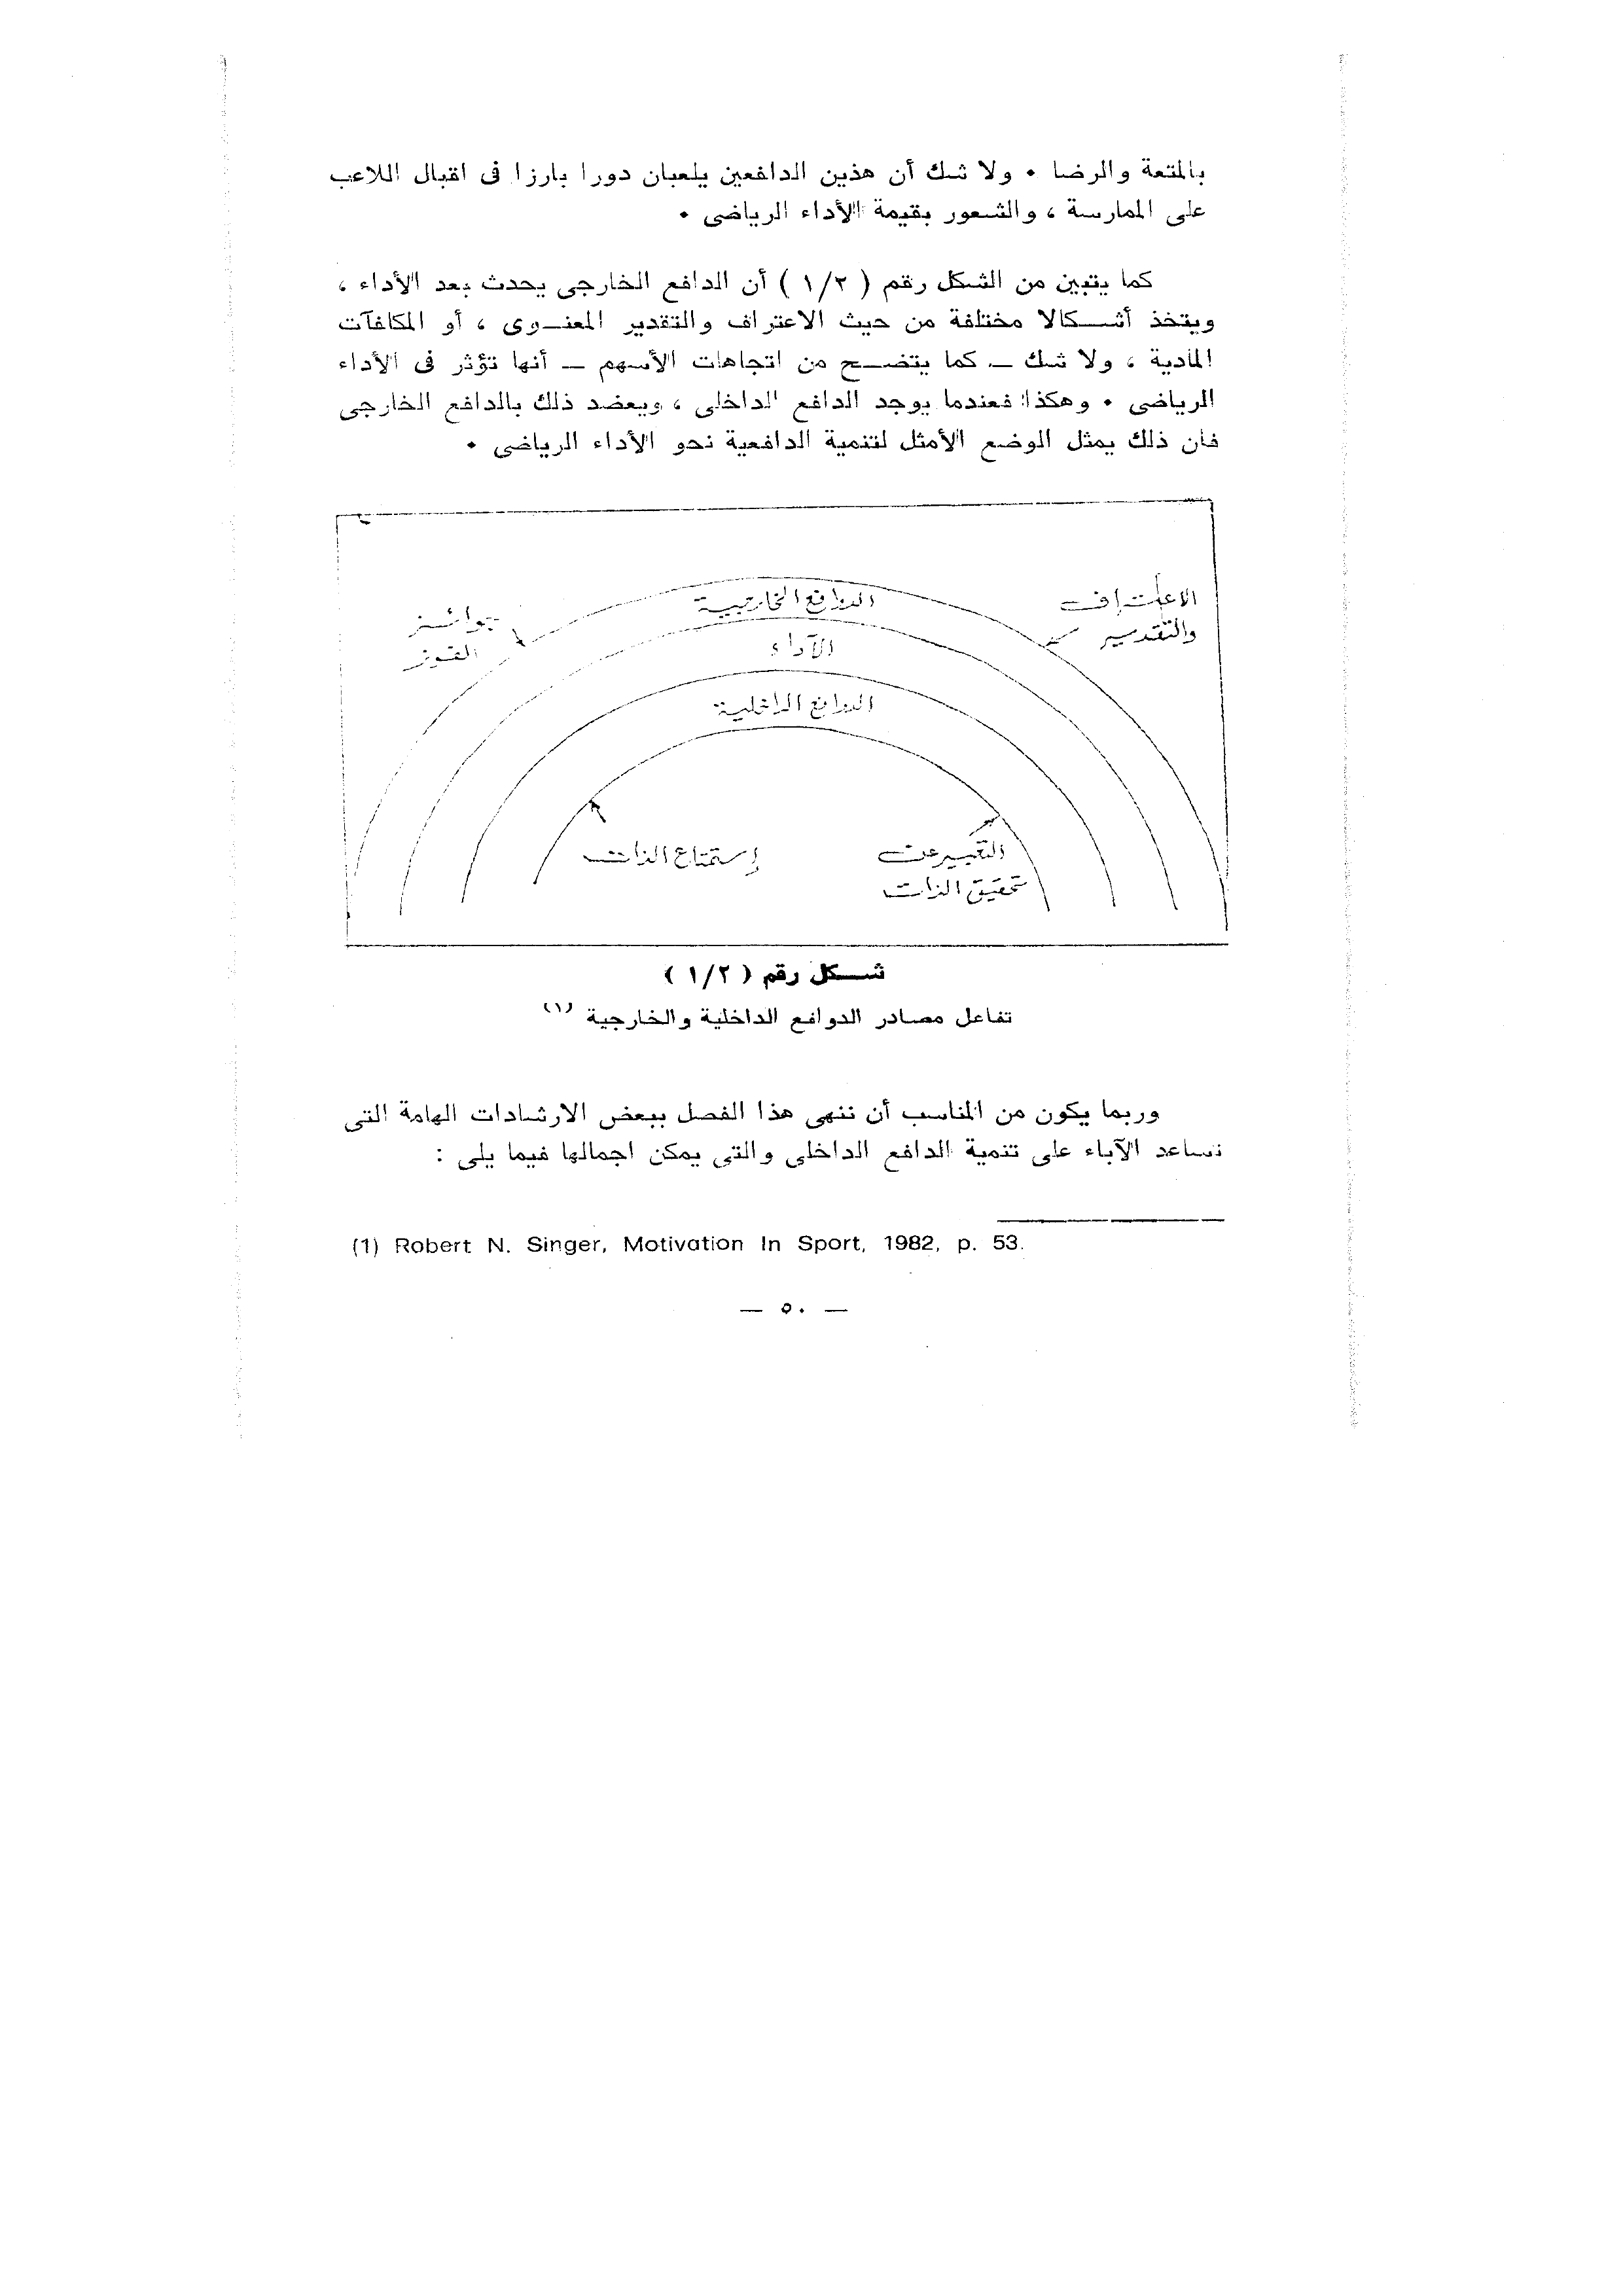 بالمتعة والرضا • ولا شك أن هذين الدافعين يلعبان دورا بارزا فى اقبال اللاعب
على الممارسة ، والشعور بقيمة الأداء الرياضى •
كما يتبين من الشكل رقم ( ١/٢ ) أن الدافع الخارجى يحدث بعد الأداء ،
ويتخذ أشكالا مختلفة من حيث الاعتراف والتقدير المعنوى ، أو المكافآت
المادية ، ولا شك — كما يتضح من اتجاهات الأسهم — أنها تؤثر فى الأداء
الرياضى • وهكذا فعندما يوجد الدافع الداخلى ، ويعضد ذلك بالدافع الخارجى
فان ذلك يمثل الوضع الأمثل لتنمية الدافعية نحو الأداء الرياضى •
الاعتراف
والتقدير
الدوافع الخارجية
جوائز
الفوز
الآداء
الدوافع الداخلية
التعبير عن
تحقيق الذات
إستمتاع الذات
شكل رقم ( ١/٢ )
تفاعل مصادر الدوافع الداخلية والخارجية (١)
وربما يكون من المناسب أن ننهى هذا الفصل ببعض الارشادات الهامة التى
تساعد الآباء على تنمية الدافع الداخلى والتى يمكن اجمالها فيما يلى :
(1) Robert N. Singer, Motivation In Sport, 1982, p. 53.
— ٥٠ —